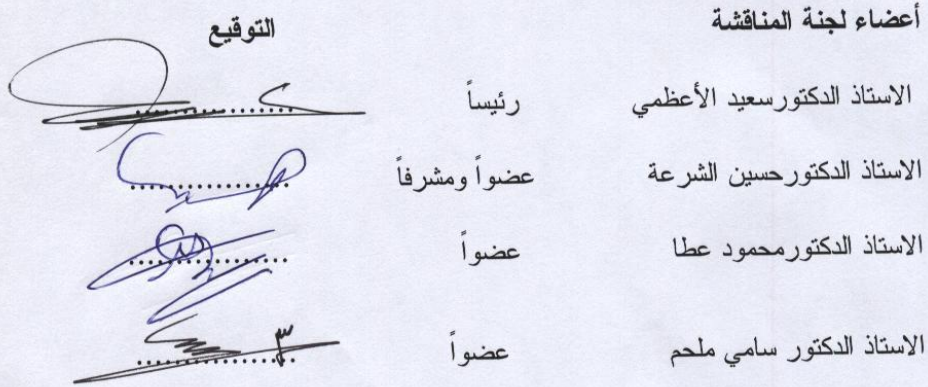 أعضاء لجنة المناقشة التوقيع
الاستاذ الدكتورسعيد الأعظمي رئيساً ................
الاستاذ الدكتورحسين الشرعة عضواً ومشرفاً ................
الاستاذ الدكتورمحمود عطا عضواً ................
الاستاذ الدكتور سامي ملحم عضواً ................